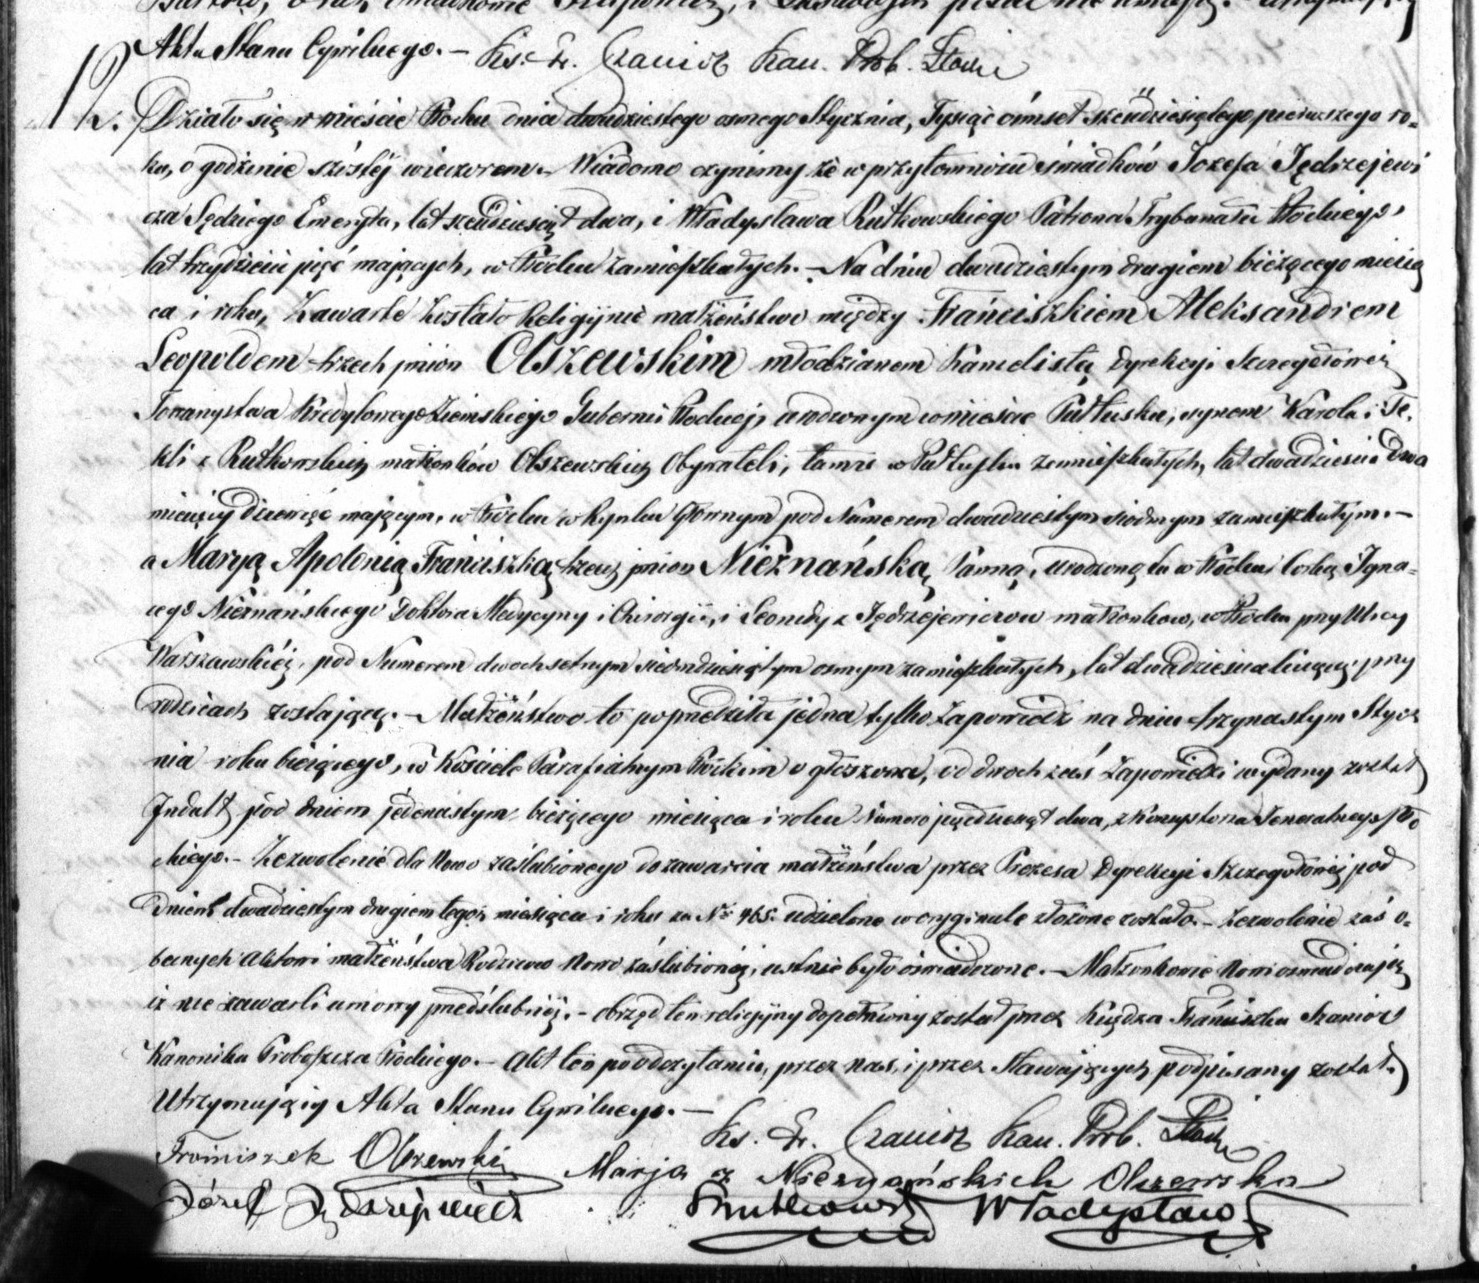 Akta Stanu Cywilnego. – Ks. Fr. Czanioz Kan. Prob. Płocki
12. Działo się w mieście Płocku dnia dwudziestego osmego Stycznia, Tysiąc óśmset sześćdziesiątego pierwszego ro-
ku, o godzinie szóstéj wieczorem. – Wiadomo czynimy że w przytomności świadków Jozefa Jędrzejewi
cza Sędziego Emeryta, lat sześćdziesiąt dwa, i Władysława Rutkowskiego Patrona Trybunału Płockiego,
lat trzydzieści pięć mających, w Płocku zamieszkałych. – Na dniu dwudziestym drugiem bieżącego miesią
ca i roku, Zawarte zostało Religijnie małżeństwo między Franciszkiem Aleksandrem
Leopoldem trzech imion Olszewskim młodzianem Kancelistą Dyrekcyi Szczegółowéj
Towarzystwa Kredytowego Ziemskiego Gubernii Płockiej, urodzonym w mieście Pułtusku, synem Karola i Te-
kli z Rutkowskich małżonków Olszewskich Obywateli, tamże w Pułtusku zamieszkałych, lat dwadzieścia dwa
miesięcy dziewięć mającym, w Płocku w Rynku Głównym pod Numerem dwudziestym siódmym zamieszkałym. –
a Maryą Apolonią Franciszką trzech imion Nieznańską Panną, urodzoną tu w Płocku córką Igna-
cego Nieznańskiego Doktora Medycyny i Chirurgii, i Leonidy z Jędrzejewiczow małżonkow, w Płocku przy Ulicy
Warszawskiéj, pod Numerem dwochsetnym siedmdziesiątym osmym zamieszkałych, lat dwadzieścia liczącą, przy
rodzicach zostającą. – Małżeństwo to poprzedziła jedna tylko Zapowiedź na dniu trzynastym Stycz
nia roku bieżącego, w Kościele Parafialnym Płockim ogłoszona, od dwoch zaś Zapowiedzi wydany został
Indult pod dniem jedenastym bieżącego miesiąca i roku Numero pięćdziesiąt dwa, z Konsystorza Jeneralnego Pło
ckiego. – Zezwolenie dla Nowo zaślubionego do zawarcia małżeństwa przez Prezesa Dyrekcyi Szczegołowéj pod
dniem dwudziestym drugiem tegoż miesiąca i roku za Nr 465. udzielone w oryginale złożone zostało. – Zezwolenie zaś o-
becnych aktowi małżeństwa Rodzicow Nowo zaślubionéj, ustnie było oświadczone. – Małżonkowie Nowi oswiadczają
iż nie zawarli umowy przedślubnéj. – obrzęd ten religijny dopełniony został przez Księdza Franciszka
Kanonika Proboszcza Płockiego. – Akt ten po odczytaniu, przez nas, i przez Stawających podpisany został.
Utrzymujący Akta Stanu Cywilnego. –
Ks. Fr. Czanioz Kan. Prob. Płocki
Franciszek Olszewski Marja z Nieznańskich Olszewska
Józef Jędrzejewicz Rutkowski Władysław